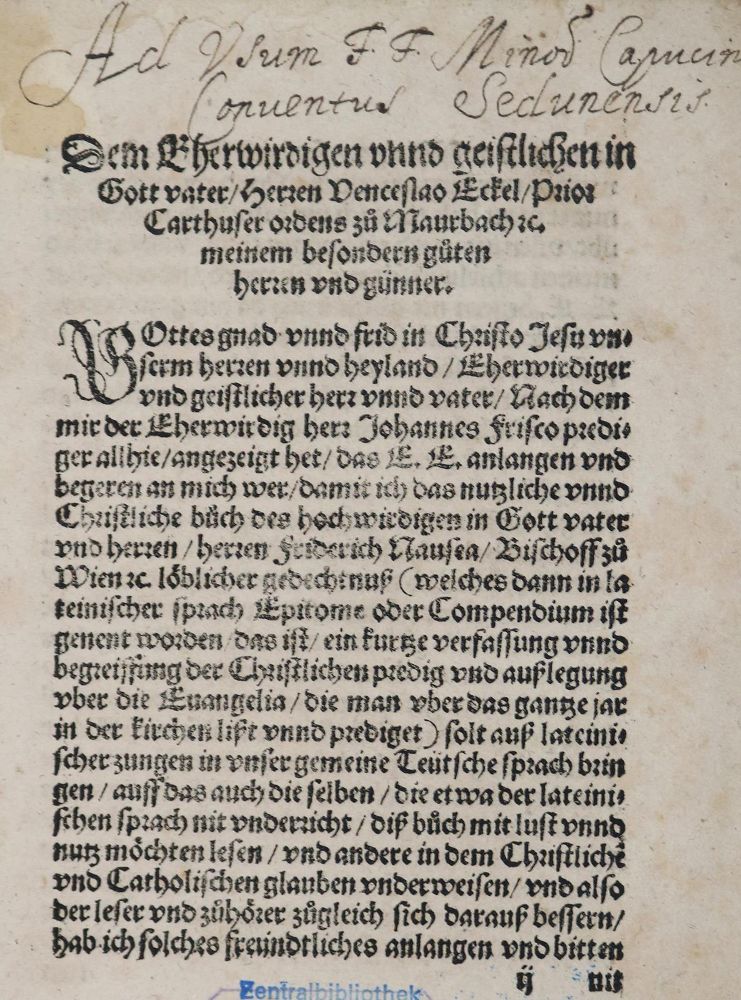 Ad Usum F. F. Minoꝝ Capucin
Conventus Sedunensis.
Dem Eherwirdigen vnnd geistlichen in
Gott vater/Herren Venceslao Eckel/Prior
Carthuser ordens zů Maurbach ꝛc.
meinem besondern gůten
herren vnd günner.
GOttes gnad vnnd frid in Christo Jesu vn⸗
serm herren vnnd heyland / Eherwirdiger
vnd geistlicher herr vnnd vater/ Nach dem
mir der Eherwirdig herr Johannes Frisco predi⸗
ger allhie/angezeigt het/ das E. E. anlangen vnd
begeren an mich wer/damit ich das nutzliche vnnd
Christliche bůch des hochwirdigen in Gott vater
vnd herren / herren Friderich Nausea/ Bischoff zů
Wien ꝛc. löblicher gedechtnuß (welches dann in la
teinischer sprach Epitome oder Compendium ist
genent worden/das ist/ ein kurtze verfassung vnnd
begreiffung der Christlichen predig vnd außlegung
vber die Euangelia / die man vber das gantze jar
in der kirchen lißt vnnd prediget) solt auß lateini⸗
scher zungen in vnser gemeine Teütsche sprach brin
gen / auff das auch die selben / die etwa der lateini⸗
schen sprach nit vnderricht / diß bůch mit lust vnnd
nutz möchten lesen / vnd andere in dem Christlichē
vnd Catholischen glauben vnderweisen/ vnd also
der leser vnd zůhörer zůgleich sich darauß bessern/
hab ich solches freündtliches anlangen vnd bitten
ij nit
Zentralbibliothek